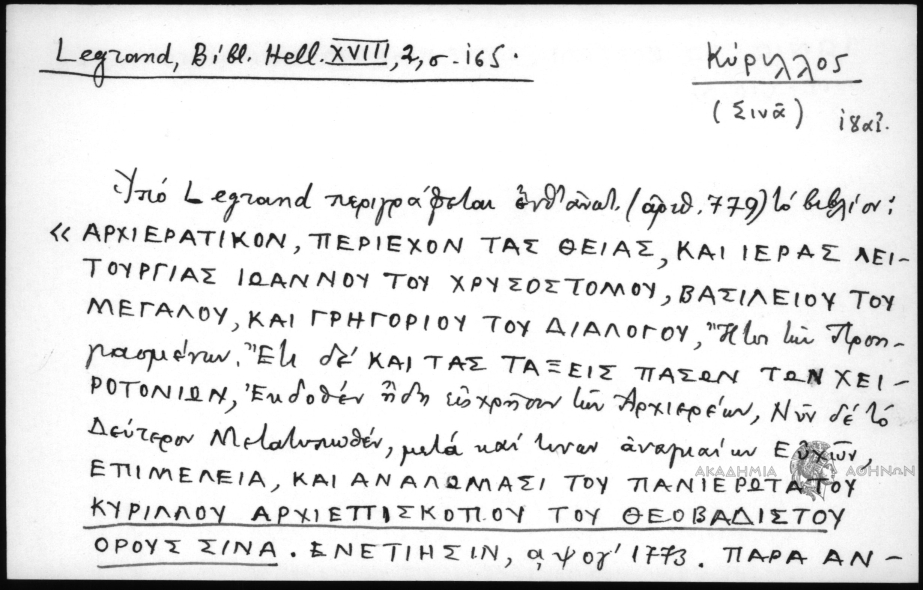 Legrand, Bibl. Hell. XVIII, 2, σ. 165.
Κύριλλος
(Σινᾶ)
Ὑπό Legrand περιγράφεται ἐνταῦθα (ἀριθ. 779) τό βιβλίον:
« ΑΡΧΙΕΡΑΤΙΚΟΝ, ΠΕΡΙΕΧΟΝ ΤΑΣ ΘΕΙΑΣ, ΚΑΙ ΙΕΡΑΣ ΛΕΙ-
ΤΟΥΡΓΙΑΣ ΙΩΑΝΝΟΥ ΤΟΥ ΧΡΥΣΟΣΤΟΜΟΥ, ΒΑΣΙΛΕΙΟΥ ΤΟΥ
ΜΕΓΑΛΟΥ, ΚΑΙ ΓΡΗΓΟΡΙΟΥ ΤΟΥ ΔΙΑΛΟΓΟΥ, Ἤτοι τῶν Προη-
γιασμένων. Ἔτι δέ ΚΑΙ ΤΑΣ ΤΑΞΕΙΣ ΠΑΣΩΝ ΤΩΝ ΧΕΙ-
ΡΟΤΟΝΙΩΝ, Ἐκδοθέν ἤδη εἰς χρῆσιν τῶν Ἀρχιερέων, Νῦν δέ τό
Δεύτερον Μετατυπωθέν, μετά καί τινων ἀναγκαίων Εὐχῶν,
ΕΠΙΜΕΛΕΙΑ, ΚΑΙ ΑΝΑΛΩΜΑΣΙ ΤΟΥ ΠΑΝΙΕΡΩΤΑΤΟΥ
ΑΚΑΔΗΜΙΑ ΑΘΗΝΩΝ
ΚΥΡΙΛΛΟΥ ΑΡΧΙΕΠΙΣΚΟΠΟΥ ΤΟΥ ΘΕΟΒΑΔΙΣΤΟΥ
ΟΡΟΥΣ ΣΙΝΑ. ΕΝΕΤΙΗΣΙΝ, ͵αψογ' 1773. ΠΑΡΑ ΑΝ-